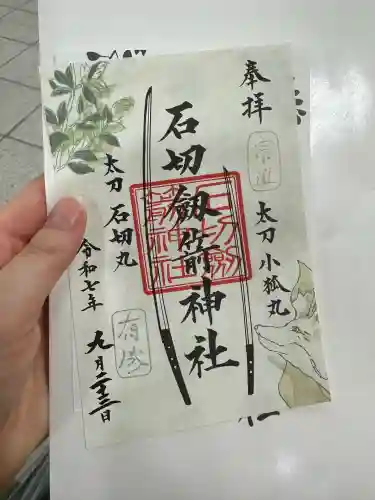 奉拝
太刀 小狐丸
宗近
石切劔箭神社
太刀 石切丸
有成
令和七年
九月二十三日